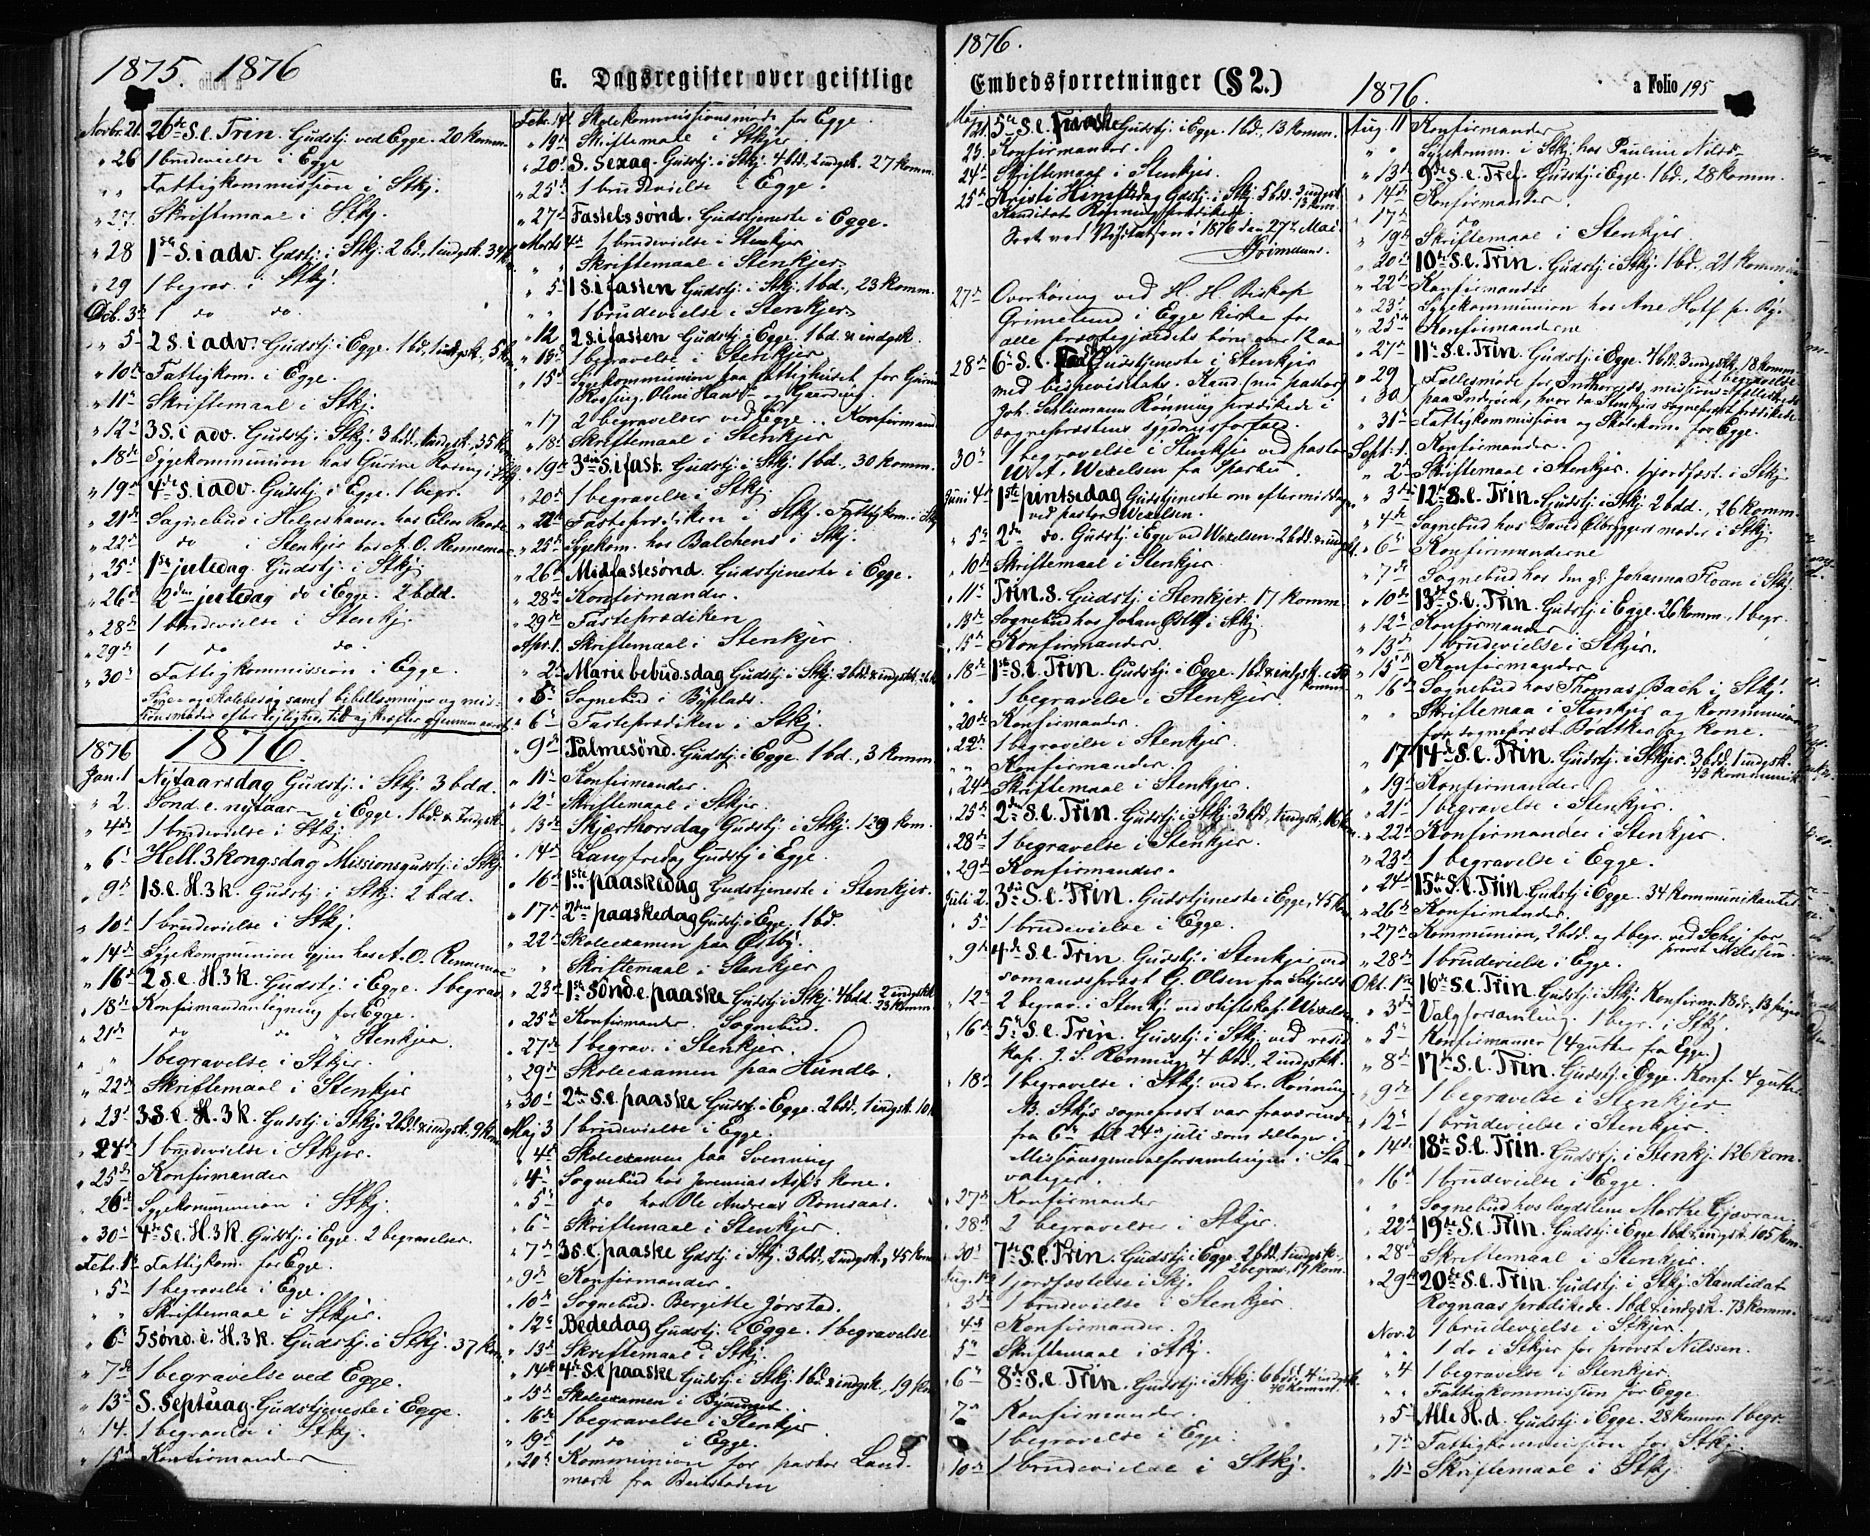 1875. 1876
G. Dagsregister over geistlige
Novbr. 21. 26de S. e. Trin. Gudstj. ved Egge. 20 komm.
" 26 1 brudevielse i Egge
" " Fattigkommission i Stkj.
" 27. Skriftemaal i Stkj.
" 28 1ste S. i adv. Gdstj. i Stkj. 2 bd., 1 indgsk. 34 k
" 29 1 begrav. i Stkj.
Dcb. 3die 1 do do.
" 5te 2 S. i adv. Gudstj. i Egge. 1 bd, 1 indgsk.
" 10de Fattigkom. i Egge.
" 11te Skriftemaal i Stkj.
" 12te 3 S. i adv. Gudstj. i Stkj. 3 bdd., 1 indgsk., 35 k
" 18de Sygekommunion hos Gurine Rosing i Stkj.
" 19de 4de S. i adv. Gudstj. i Egge. 1 begr.
" 21de Sognebud i Helgeshaven hos Elen
" 22de do i Stenkjer hos A. O. Rennemo
" 25de 1ste juledag. Gudstj. i Stkj.
" 26de 2den juledag do i Egge. 2 bdd.
" 28de 1 brudevielse i Stenkjer.
" 29de 1 do do.
" 30te Fattigkommission i Egge.
Syge- og Skolebesøg samt bibellæsninger og mis-
sionsmøder efter leilighed, tid og kræfter
1876 1876.
Jan. 1 Nytaarsdag Gudstj. i Stkj. 3 bdd.
" 2. Sønd. e. nytaar i Egge. 1 bd. & indgsk.
" 4de 1 brudevielse i Stkj.
" 6te Hell. 3 kongsdag Missionsgudstj. i Stkj.
" 9de 1 S. e. H. 3 k. Gudstj. i Stkj. 2 bdd.
" 10de 1 brudevielse i Stkj.
" 14de Sygekommunion hos A. O. Rennemo
" 16de 2 S. e. H. 3 k. Gudstj. i Egge. 1 begrav.
" 18de Konfirmandanlegning for Egge.
" 21de do do " Stenkjer.
" " 1 begravelse i Stkjer.
" 22de Skriftemaal i Stenkjer
" 23de 3 S. e. H. 3 k. Gudstj. i Stkj. 2 bd. & indgsk. 9 kom.
" 24de 1 brudevielse i Stkjer.
" 25de Konfirmander
" 26de Sygekommunion i Stkj.
" 30te 4de S. e. H. 3 k. Gudstj. i Egge. 2 begravelser.
Febr. 1ste Fattigkom. for Egge.
" 5te 1 begravelse i Egge.
" " Skriftemaal i Stkjer.
" 6te 5 sønd. e. H. 3 k. Gudstj. i Stkj. 37 kom.
" 7de 1 begravelse ved Egge.
" 13de S. Septuag. Gudstjeneste i Egge.
" 14. 1 begravelse i Stkj.
" 15de Konfirmander
Febr. 14 Skolekommissionsmøde for Egge.
" 19de Skriftemaal i Stkj.
" 20de S. Sexag. Gudstj. i Stkj. 4 bdd, 2 indgsk. 27 komm.
" 25de 1 brudevielse i Egge.
" 27de Fastelssønd. Gudstjeneste i Egge.
Marts 4de 1 brudevielse i Stenkjer
" " Skriftemaal i Stenkjer
" 5te 1 S. i fasten Gudstj. i Stkj. 1 bd., 23 komm.
" " 1 brudevielse i Stenkjer
" 12 2 S. i fasten Gudstj. i Egge. 1 bd. & indgsk.
" 13de 1 begravelse i Stenkjer
" 15de Sygekommunion paa fattighuset for
" 17 2 begravelser ved Egge. . Konfirmand
" 18de Skriftemaal i Stenkjer
" 19de 3die S. i fast. Gudstj. i Stkj. 1 bd., 30 komm.
" 20de 1 begravelse i Stkj.
" 22de Fasteprædiken i Stkj. Fattigkom. i Stkj
" 25de Sygekom. hos Balchens i Stkj.
" 26de Midfastesønd. Gudstjeneste i Egge.
" 28de Konfirmander.
" 29de Fasteprædiken
Apr. 1. Skriftemaal i Stenkjer
" 2den Marie bebudsdag Gudstj. i Stkj. 2 bd. & indgsk.
" 5te Sognebud i
" 6te Fasteprædiken i Stkj.
" 9de Palmesønd. Gudstj. i Egge. 1 bd., 3 komm.
" 11te Konfirmander.
" 12te Skriftemaal i Stkjer.
" 13de Skjærthorsdag Gudstj. i Stkj. 139 kom.
" 14de Langfredag Gudstj. i Egge.
" 16de 1ste paaskedag Gudstjeneste i Stenkjer.
" 17de 2den paaskedag Gudstj. i Egge. 1 bd.
" 22de Skoleexamen paa Østby.
" Skriftemaal i Stenkjer
" 23de 1ste sønd e. paaske Gudstj. i Stkj. 4 bdd. 2 indgsk. 23 komm.
" 25de Konfirmander. Sognebud.
" 27de 1 begrav. i Stenkjer.
" 29de Skoleexamen paa Hundlo.
" 30te 2den S. e. paaske Gudstj. i Egge. 2 bdd. 1 indgsk. 10 k
Maj 3 1 brudevielse i Egge.
" 4de Skoleexamen paa Svenning
" 4de Sognebud hos Jeremias Asp's kone.
" 5te do hos Ole Andreas
" 6te Skriftemaal i Stenkjer.
" 7de 3 S. e. paaske Gdstj. i Stkj. 3 bdd., 2 indgsk., 45 kom
" 9de Konfirmander.
" 10de Sognebud. Bergitte Jørstad.
" 12te Bededag Gudstj. i Egge. 1 begravelse
" 13de Skriftemaal i Stkj.
" 14de 4de S. e. paaske Gudstj. i Stkj. 1 bd. & indgsk. 19 kom
" 15de Skoleexamen i
" 16de 1 begravelse i Stenkjer
" 19de 1 do i Egge.
" 20de Kommunion for pastor Land-
mark fra Beitstaden
1876.
Embedsforretninger (§ 2.)
1876.
a Folio 195
Maj 21. 5te S. e. paaske Gudstj. i Egge. 1 bd. 13 komm.
23. Konfirmander.
24de Skriftemaal i Stenkjer.
25de Kristi Himmelfdag Gdstj. i Stkj. 5 bdd. 3 indgsk
Kandidat Rønning prædikede
Forev. ved Visitatsen i 1876 den 27de Mai
Grimelund.
27de Overhøring ved H. H. Biskop
Grimelund i Egge kirke for
alle præstegjældets børn over 12 aar
28de 6te S. e. Paaske Gudstjeneste i Stenkjer
med bispevisitats. Kand. (nu pastor)
Joh. Schliemann Rønning prædikede i
sognepræstens sygdomsforfald.
30te 1 begravelse i Stenkjer ved pastor
W. A. Wexelsen fra Sparbu.
Juni 4de 1ste pintsedag Gudstjeneste om eftermiddagen
ved pastor Wexelsen.
" 5te 2den do. Gudstj. i Egge ved Wexelsen. 2 bdd. & indgsk.
" 10de Skriftemaal i Stenkjer.
" 11te Trin. S. Gudstj. i Stenkjer. 17 komm.
" 13de Sognebud hos Johan i Stkj.
" 15de Konfirmander.
" 18de 1ste S. e. Trin. Gudstj. i Egge. 1 bd. & indgsk. komm.
" " 1 begravelse i Stenkjer.
" 20de Konfirmander.
" 22de 1 begravelse i Stenkjer.
" " Konfirmander.
" 24de Skriftemaal i Stenkjer.
" 25de 2den S. e. Trin. Gudstj. i Stkj. 3 bd., 1 indgsk., 16 kom.
" 28de 1 begravelse i Stenkjer.
" 29de Konfirmander.
Juli 2. 3die S. e. Trin. Gudstjeneste i Egge, 45 kom
" 5te 1 brudevielse i Egge.
" 9de 4de S. e. Trin. Gudstj. i Stenkjer ved
sømandsprest G. Olsen fra
" 12te 2 begrav. i Stenkj. ved stiftskap. Wexelsen
" 16de 5te S. e. Trin. Gudstj. i Stkj. ved resid.
kap. J. S. Rønning 4 bdd., 2 indgsk.
" 18de 1 begravelse i Stkj. ved hr. Rønning
NB. Stkjs sognepræst var fraværende
fra 6te til 24de juli som deltager i
Missionsgeneralforsamlingen i Sta-
vanger.
" 27de Konfirmander
" 28de 2 begravelser i Stkjer.
" 30te 7de S. e. Trin. Gudstj. i Egge. 2 bdd. 1 indgsk. 2 begrav., 17 kom.
Aug. 1ste 1 jordfæstelse i Skj.
" 3die 1 brudevielse i Stenkjer
" 4de Konfirmander.
" 5te Skriftemaal i Stkj.
" 6te 8de S. e. Trin. Gudstj. i Stkj. 6 bd. 4 indgsk. 40 komm.
" 7de Konfirmander.
1 begravelse i Egge.
" 10de 1 brudevielse i Stkj.
Aug. 11 Konfirmander
" " Sygekomm. i Stkj. hos Pauline Nilsd.
" 13de 9de S. e. Tref. Gudstj. i Egge. 1 bd., 28 komm.
" 14de Konfirmander.
" 17de do
" 19de Skriftemaal i Stenkjer.
" 20de 10de S. e. Trin. Gudstj. i Stkj. 1 bd., 21 kommun
" 22de Konfirmander
" 23de Sygekommunion hos Ane
" 25de Konfirmanderne
" 27de 11te S. e. Trin. Gudstj. i Egge. 4 bd. 3 indgsk., 18 komm. 2 begravelse
" 29 Fællesmøde for Indherreds missions-fælleskreds
" 30 paa Inderøen, hvor da Stenkjers sognepræst prædikede
" 31te Fattigkommission og Skolekom. for Egge.
Septr. 1. Konfirmander.
" 2den Skriftemaal i Stenkjer. 1 jordfæst. i Stkj.
" 3die 12te S. e. Trin. Gudstj. i Stkj. 2 bdd., 26 komm.
" 4de Sognebud hos David moder i Stkj.
" 6te Konfirmanderne
" 7de Sognebud hos den gl. Johanna Floan i Stkj.
" 10de 13de S. e. Trin. Gudstj. i Egge. 26 kom., 1 begr.
" 12te Konfirmander
" 13de 1 brudevielse i Stkjer.
" 15de Konfirmander
" 16de Sognebud hos Thomas Bach i Stkj.
" Skriftemaal i Stenkjer og kommunion
for sognepræst Bødtker og kone.
" 17 14de S. e. Trin. Gudstj. i Stkjer. 3 bdd., 1 indgsk. 43 kommunik
" 19de Konfirmander
" 21de 1 begravelse i Stenkjer.
" 22de Konfirmander i Stenkjer.
" 23de 1 begravelse i Egge.
" 24de 15de S. e. Trin. Gudstj. i Egge. 34 kommunikanter
" 26de Konfirmander.
" 27de Kommunion, 2 bdd. og 1 begr. ved Schej for
provst Nilssen.
" 28de 1 brudevielse i Egge.
Okt. 1ste 16de S. e. Trin. Gudstj. i Stkj. Konfirm. 18 dr., 13 piger
" 3die Valgforsamling. 1 begr. i Stkj.
" 5te Konfirmander (4 gutter fra Egge.)
" 8de 17de S. e. Trin. Gudstj. i Egge. Konf. 4 gutter
" 9de 1 begravelse i Stenkjer
" 12te 1 brudevielse i Stenkjer.
" 14de 18de S. e. Trin. Gudstj. i Stenkj. 126 kom.
" 16de 1 brudevielse i Egge.
Sognebud hos lægdslem Marthe Gjævran.
" 22de 19de S. e. Trin. Gudstj. i Egge 1 bd. & indgsk. 105 kom.
" 28de Skriftemaal i Stenkjer.
" 29de 20de S. e. Trin. Gudstj. i Stkj. Kandidat
Rognaas prædikede. 1 bd. & indgsk. 73 komm.
Nov. 2 1 brudevielse i Stkjer.
" " 1 do i Stkjer for provst Nilssen.
" 4 1 begravelse i Stenkjer.
" " Fattigkommission for Egge.
" 5te Alle H. d. Gudstj. i Egge. 28 komm. 1 begr.
" 7de Fattigkommission for Stkj.
" 11te Skriftemaal i Stkj.